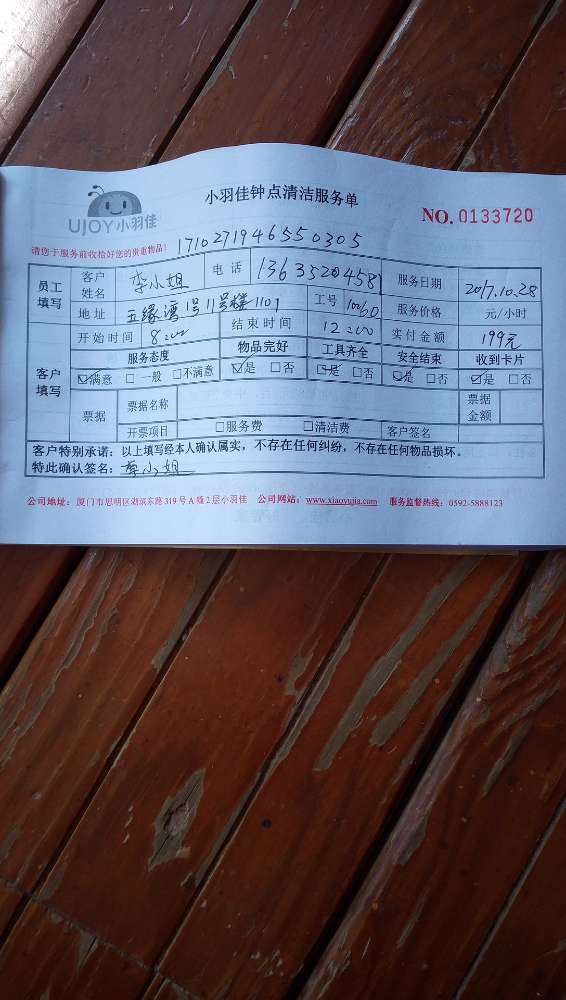 UJOY小羽佳
小羽佳钟点清洁服务单
NO. 0133720
请您于服务前收拾好您的贵重物品!
1710271946550305
员工填写 客户姓名 李小姐 电话 13635204581 服务日期 2017.10.28
地址 五缘湾1号11号楼1101 工号 10060 服务价格 元/小时
开始时间 8:00 结束时间 12:00 实付金额 199元
客户填写 服务态度 物品完好 工具齐全 安全结束 收到卡片
☑满意 □一般 □不满意 ☑是 □否 ☑是 □否 ☑是 □否 ☑是 □否
票据 票据名称 票据金额
开票项目 □服务费 □清洁费 客户签名
客户特别承诺:以上填写经本人确认属实,不存在任何纠纷,不存在任何物品损坏。
特此确认签名:李小姐
公司地址:厦门市思明区湖滨东路319号A幢2层小羽佳 公司网站:www.xiaoyujia.com 服务监督热线:0592-5888123